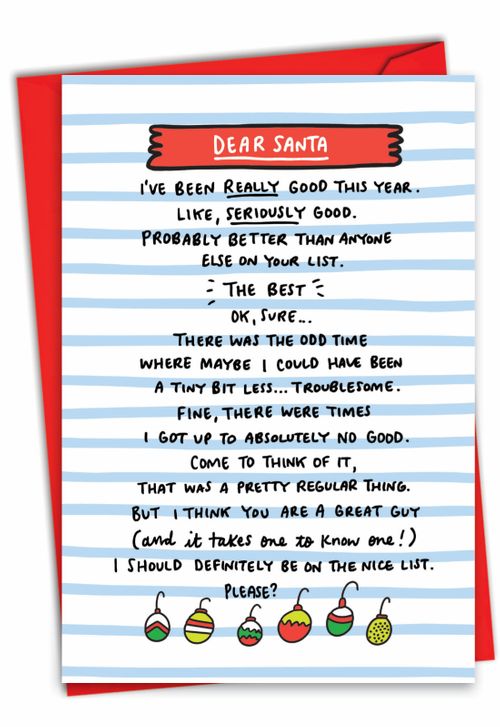 DEAR SANTA
I'VE BEEN REALLY GOOD THIS YEAR.
LIKE, SERIOUSLY GOOD.
PROBABLY BETTER THAN ANYONE
ELSE ON YOUR LIST.
THE BEST
OK, SURE...
THERE WAS THE ODD TIME
WHERE MAYBE I COULD HAVE BEEN
A TINY BIT LESS... TROUBLESOME.
FINE, THERE WERE TIMES
I GOT UP TO ABSOLUTELY NO GOOD.
COME TO THINK OF IT,
THAT WAS A PRETTY REGULAR THING.
BUT I THINK YOU ARE A GREAT GUY
(and it takes one to know one!)
I SHOULD DEFINITELY BE ON THE NICE LIST.
PLEASE?